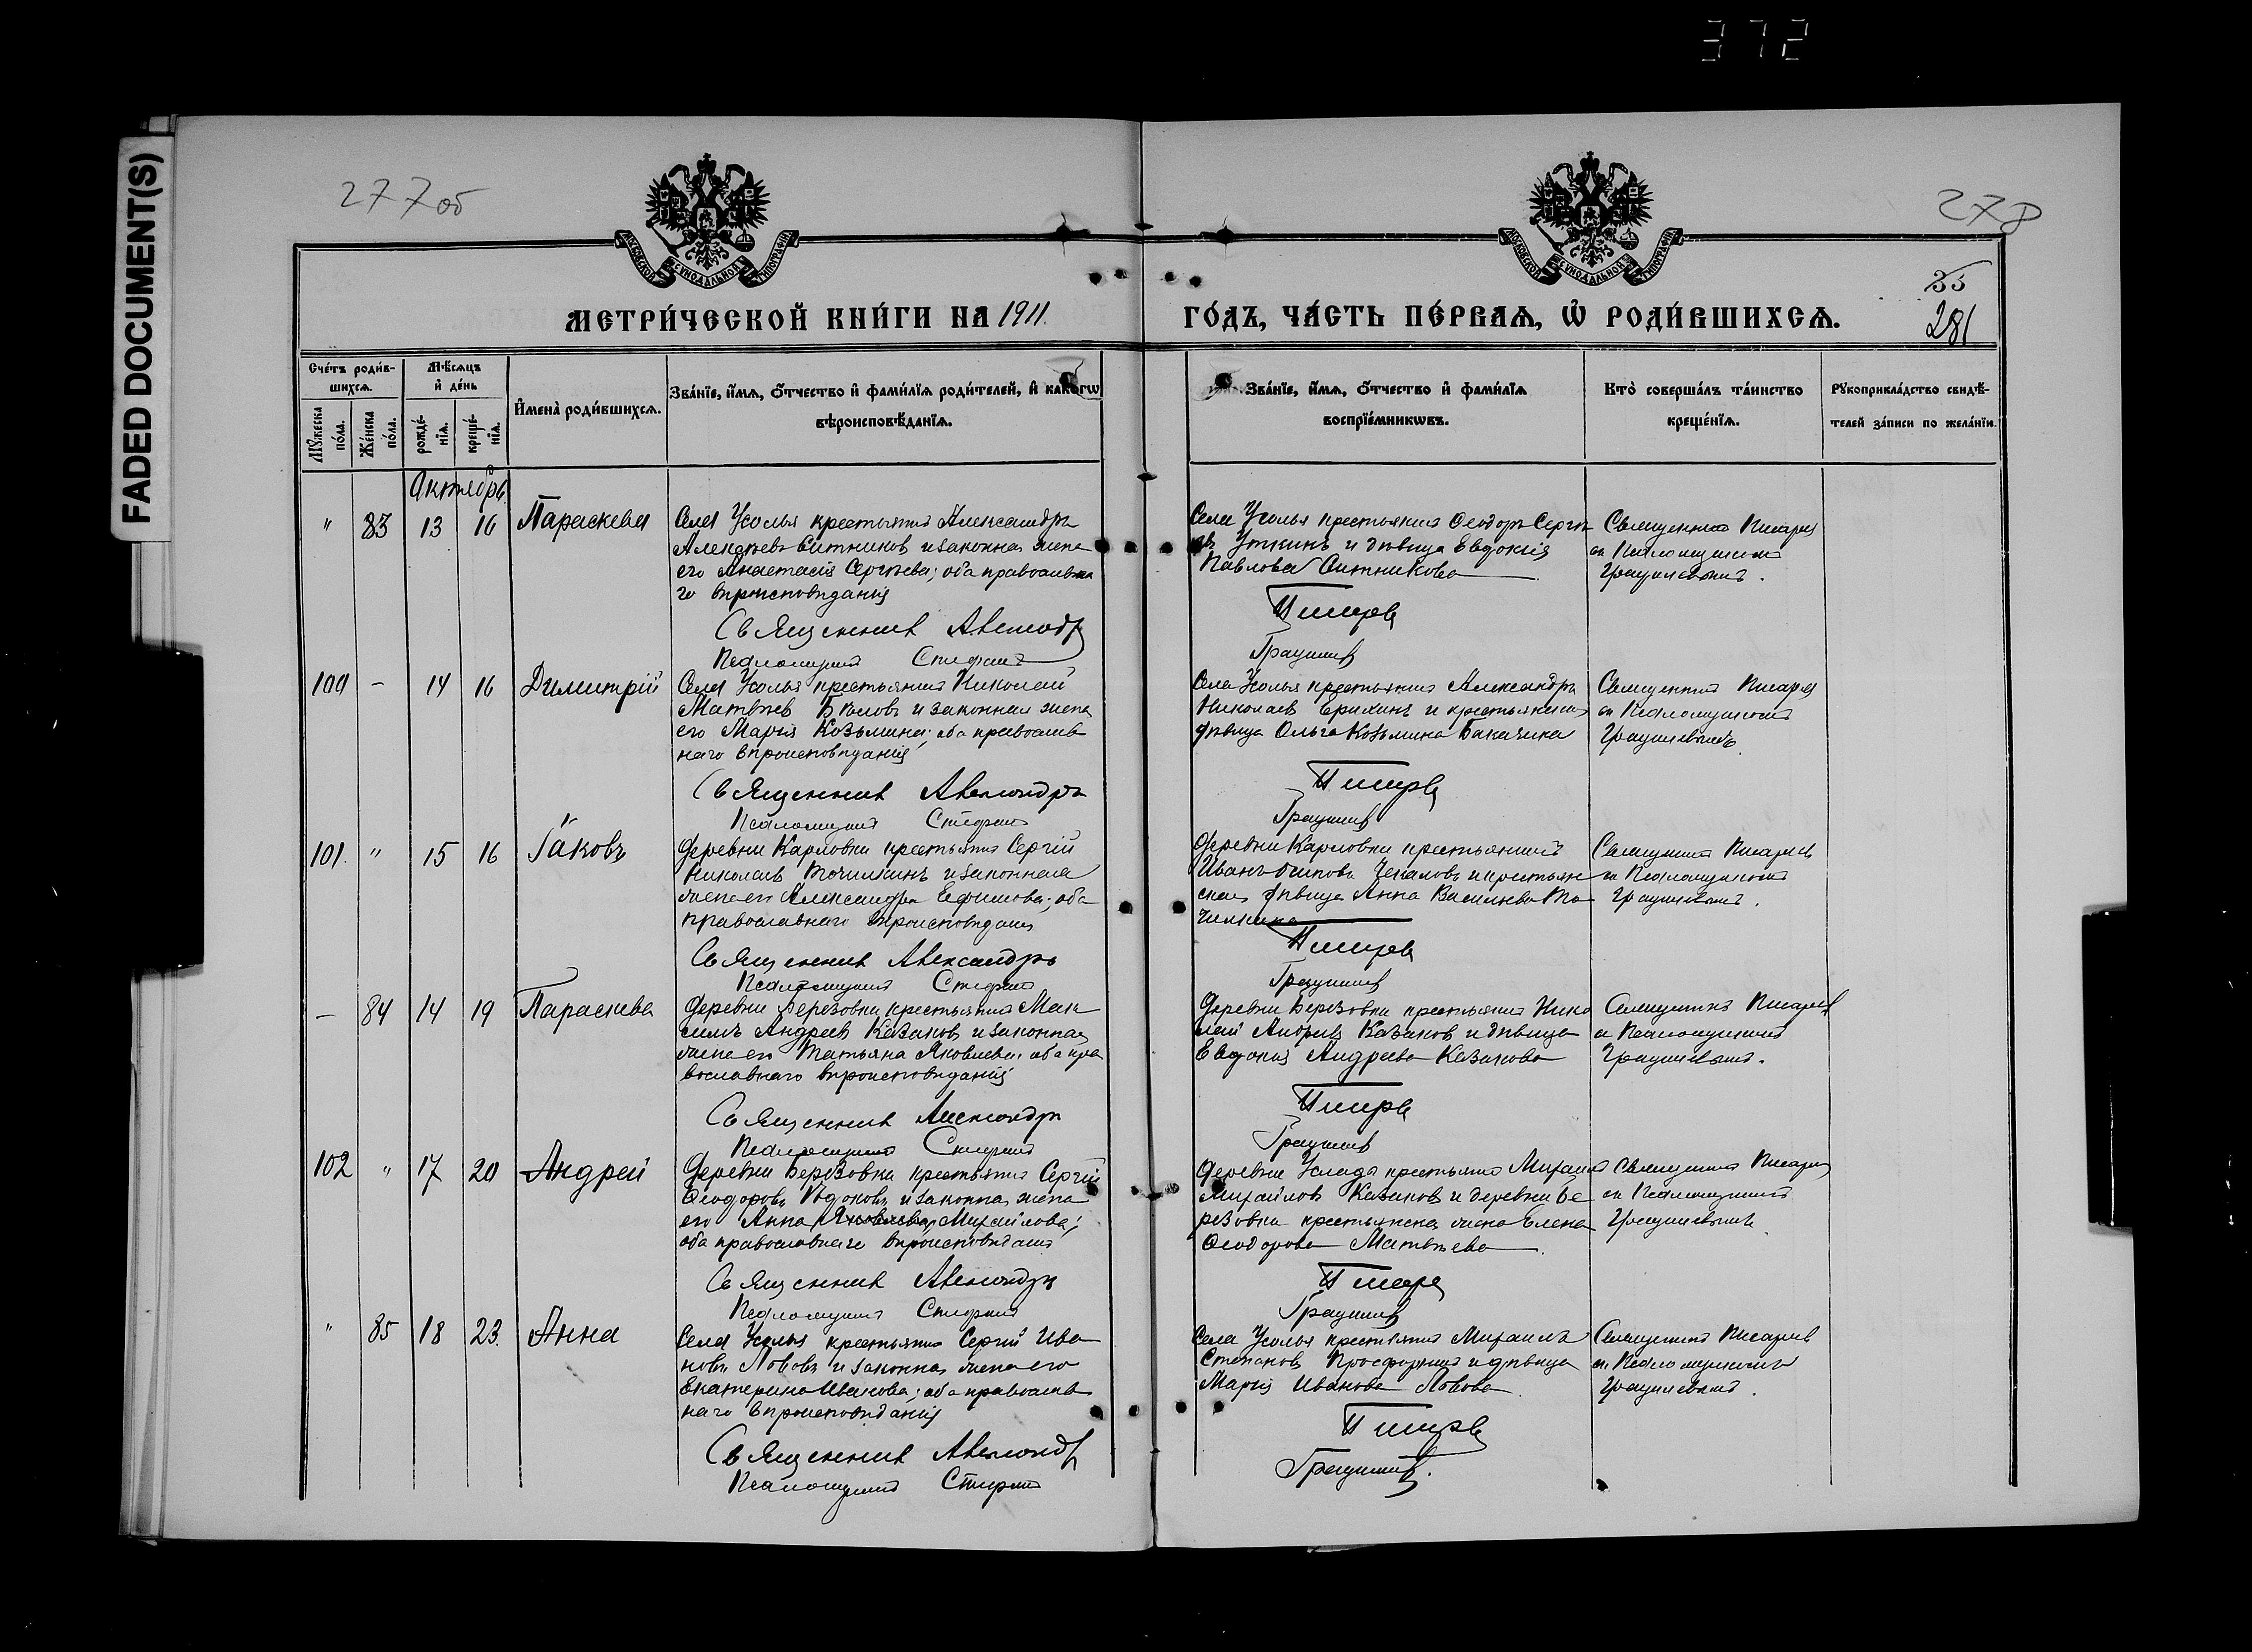 372
FADED DOCUMENT(S)
277 об
278
МОСКОВСКОЙ СѴНОДАЛЬНОЙ ТИПОГРАФІИ
МОСКОВСКОЙ СѴНОДАЛЬНОЙ ТИПОГРАФІИ
35
281
МЕТРИ́ЧЕСКОЙ КНИ́ГИ НА 1911.
ГО́ДЪ, ЧА́СТЬ ПЕ́РВАѦ, Ѽ РОДИ́ВШИХСѦ.
Сче́тъ роди́в-
шихсѧ.
Мѣ́сѧцъ
и҆ де́нь
Мꙋ́жеска
по́ла.
Же́нска
по́ла.
рожде́-
нїѧ.
креще́-
нїѧ.
И҆мена̀ роди́вшихсѧ.
Зва́нїе, и҆́мѧ, ѻ҆́тчество и҆ фами́лїѧ роди́телей, и҆ како́гѡ
вѣроисповѣ́данїѧ.
Зва́нїе, и҆́мѧ, ѻ҆́тчество и҆ фами́лїѧ
воспрїе́мникѡвъ.
Кто̀ соверша́лъ та́инство
креще́нїѧ.
Рꙋкоприкла́дство свидѣ́-
телей за́писи по жела́нїю.
Октябрь
" 83 13 16 Параскева
Села Усолья крестьянинъ Александръ
Ситниковъ и законная жена
его Анастасія Сергѣева; оба православна
го вѣроисповѣданія
Священникъ Александръ
Псаломщикъ Стефанъ
Села Усолья крестьянинъ Ѳеодоръ Сергѣе
въ Уткинъ и дѣвица Евдокія
Павлова Ситникова
Писаревъ
Священникъ Писаревъ
съ Псаломщикомъ
100 — 14 16 Димитрій
Села Усолья крестьянинъ Николай
Матвѣевъ Бѣловъ и законная жена
его Марія Козьмина; оба православ
наго вѣроисповѣданія
Священникъ Александръ
Псаломщикъ Стефанъ
Села Усолья крестьянинъ Александръ
Николаевъ Ерихинъ и крестьянская
дѣвица Ольга Козьмина
Писаревъ
Священникъ Писаревъ
съ Псаломщикомъ
101. " 15 16 Іаковъ
Деревни Карловки крестьянинъ Сергій
Николаевъ Точилкинъ и законная
жена его Александра Ефимова; оба
православнаго вѣроисповѣданія
Священникъ Александръ
Псаломщикъ Стефанъ
Деревни Карловки крестьянинъ
Иванъ Осиповъ Чекаловъ и крестьян
ская дѣвица Анна Васильева То
чилкина
Писаревъ
Священникъ Писаревъ
съ Псаломщикомъ
— 84 14 19 Параскева
Деревни Березовки крестьянинъ Мак
симъ Андреевъ Казаковъ и законная
жена его Татьяна Яковлева; оба пра
вославнаго вѣроисповѣданія
Священникъ Александръ
Псаломщикъ Стефанъ
Деревни Березовки крестьянинъ Нико
лай Андреевъ Казаковъ и дѣвица
Евдокія Андреева Казакова
Писаревъ
Священникъ Писаревъ
съ Псаломщикомъ
102 " 17 20 Андрей
Деревни Березовки крестьянинъ Сергій
Ѳеодоровъ и законная жена
его Анна Яковлева Михайлова;
оба православнаго вѣроисповѣданія
Священникъ Александръ
Псаломщикъ Стефанъ
Деревни крестьянинъ Михаилъ
Михайловъ Казаковъ и деревни Бе
резовки крестьянская жена Елена
Ѳеодорова Матвѣева
Писаревъ
Священникъ Писаревъ
съ Псаломщикомъ
" 85 18 23. Анна
Села Усолья крестьянинъ Сергій Ива
новъ Лововъ и законная жена его
Екатерина Иванова; оба православ
наго вѣроисповѣданія
Священникъ Александръ
Псаломщикъ Стефанъ
Села Усолья крестьянинъ Михаилъ
Степановъ и дѣвица
Марія Иванова Ловова
Писаревъ
Священникъ Писаревъ
съ Псаломщикомъ